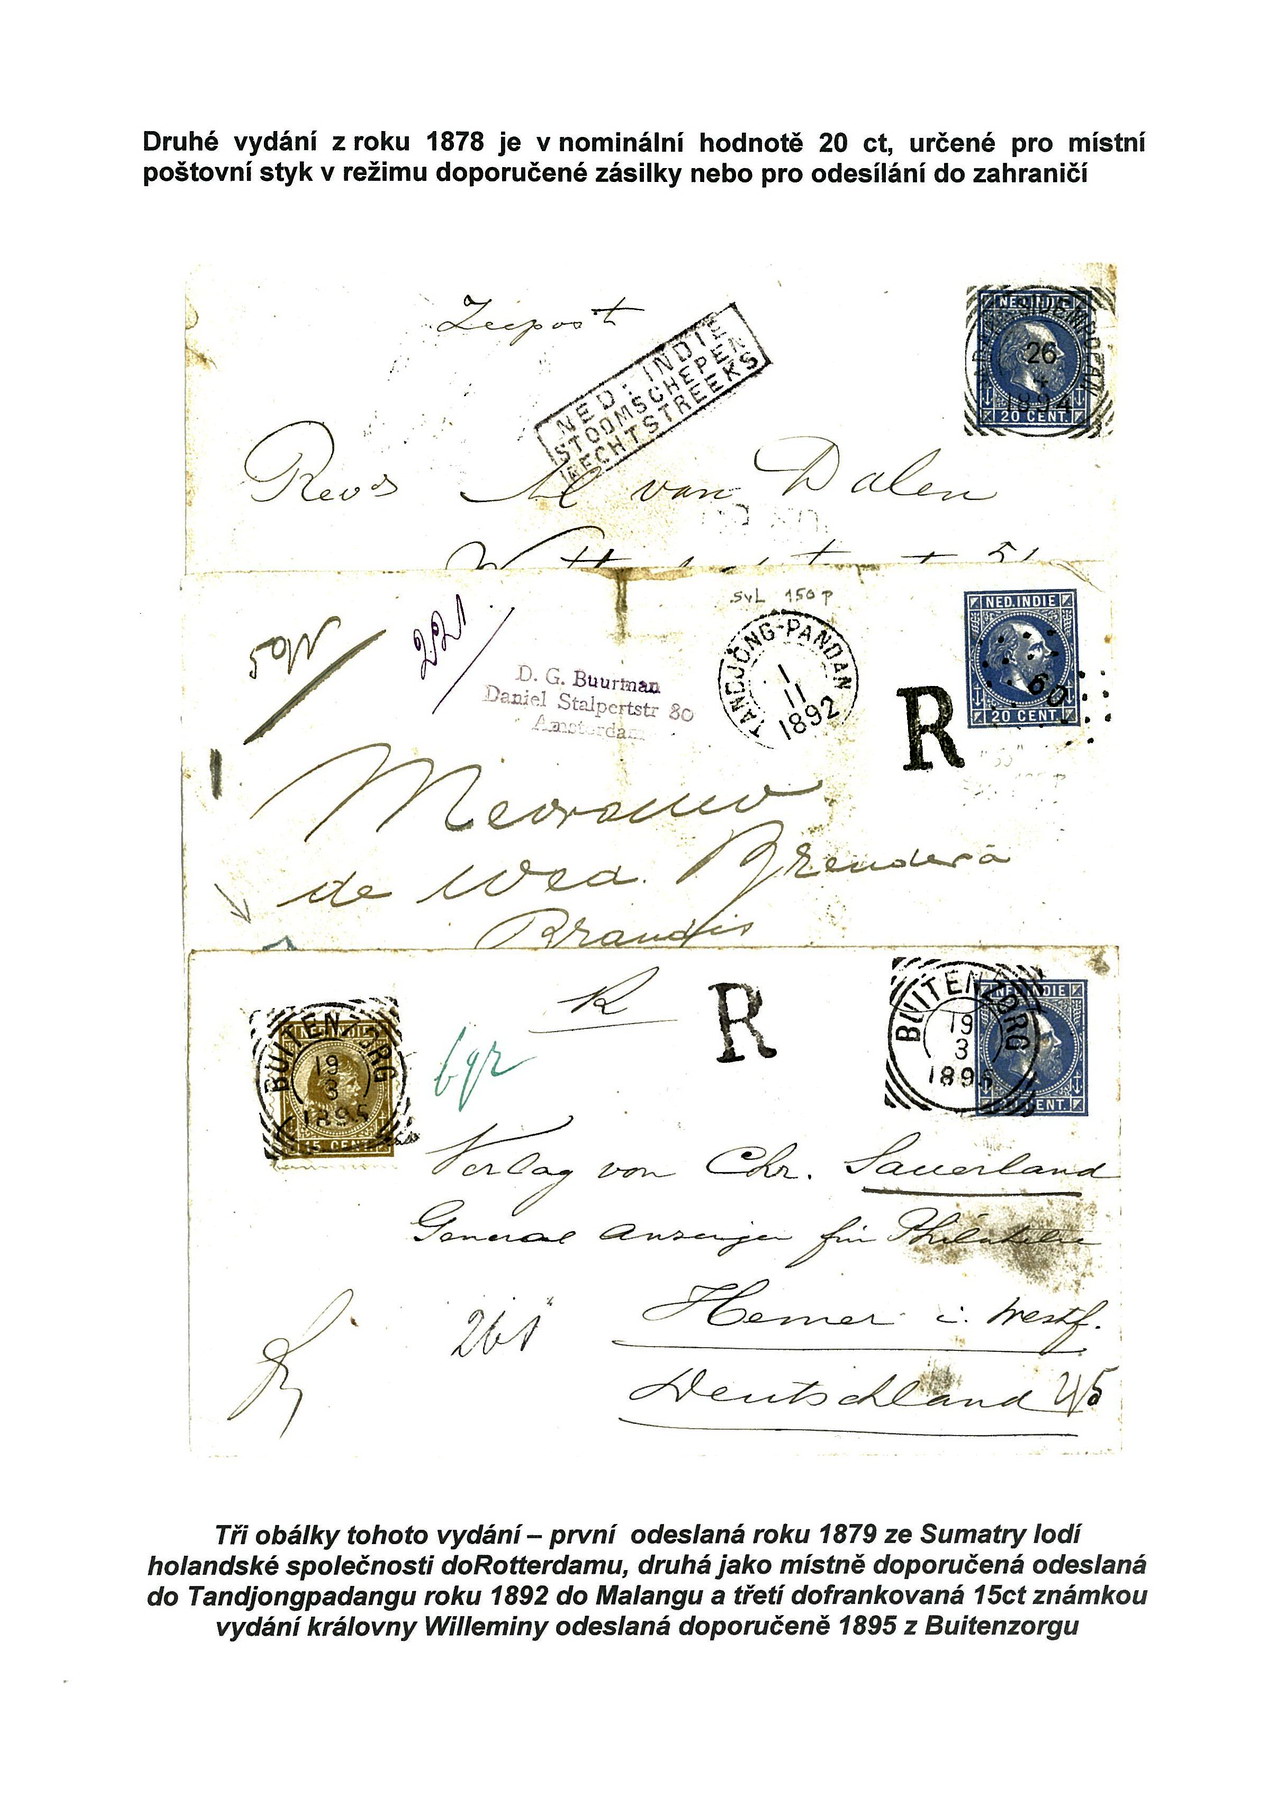 Druhé vydání z roku 1878 je v nominální hodnotě 20 ct, určené pro místní
poštovní styk v režimu doporučené zásilky nebo pro odesílání do zahraničí
Zeepost
NED. INDIE
STOOMSCHEPEN
RECHTSTREEKS
NED. INDIE
26
4
1894
20 CENT.
van Dalen
No5
221
SVL 150 P
D. G. Buurman
Daniel Stalpertstr 80
Amsterdam
TANDJONG-PANDAN
1
11
1892
R
NED. INDIE
60
20 CENT.
Mevrouw
de Wed. Brender à
Brandis
NED. INDIE
BUITENZORG
19
3
1895
15 CENT
R
R
BUITENZORG
19
3
1895
NED. INDIE
20 CENT.
Verlag von Chr. Sauerland
General Anzeiger für Philatelie
261
Hemer i. Westf.
Deutschland
Tři obálky tohoto vydání – první odeslaná roku 1879 ze Sumatry lodí
holandské společnosti doRotterdamu, druhá jako místně doporučená odeslaná
do Tandjongpadangu roku 1892 do Malangu a třetí dofrankovaná 15ct známkou
vydání královny Willeminy odeslaná doporučeně 1895 z Buitenzorgu